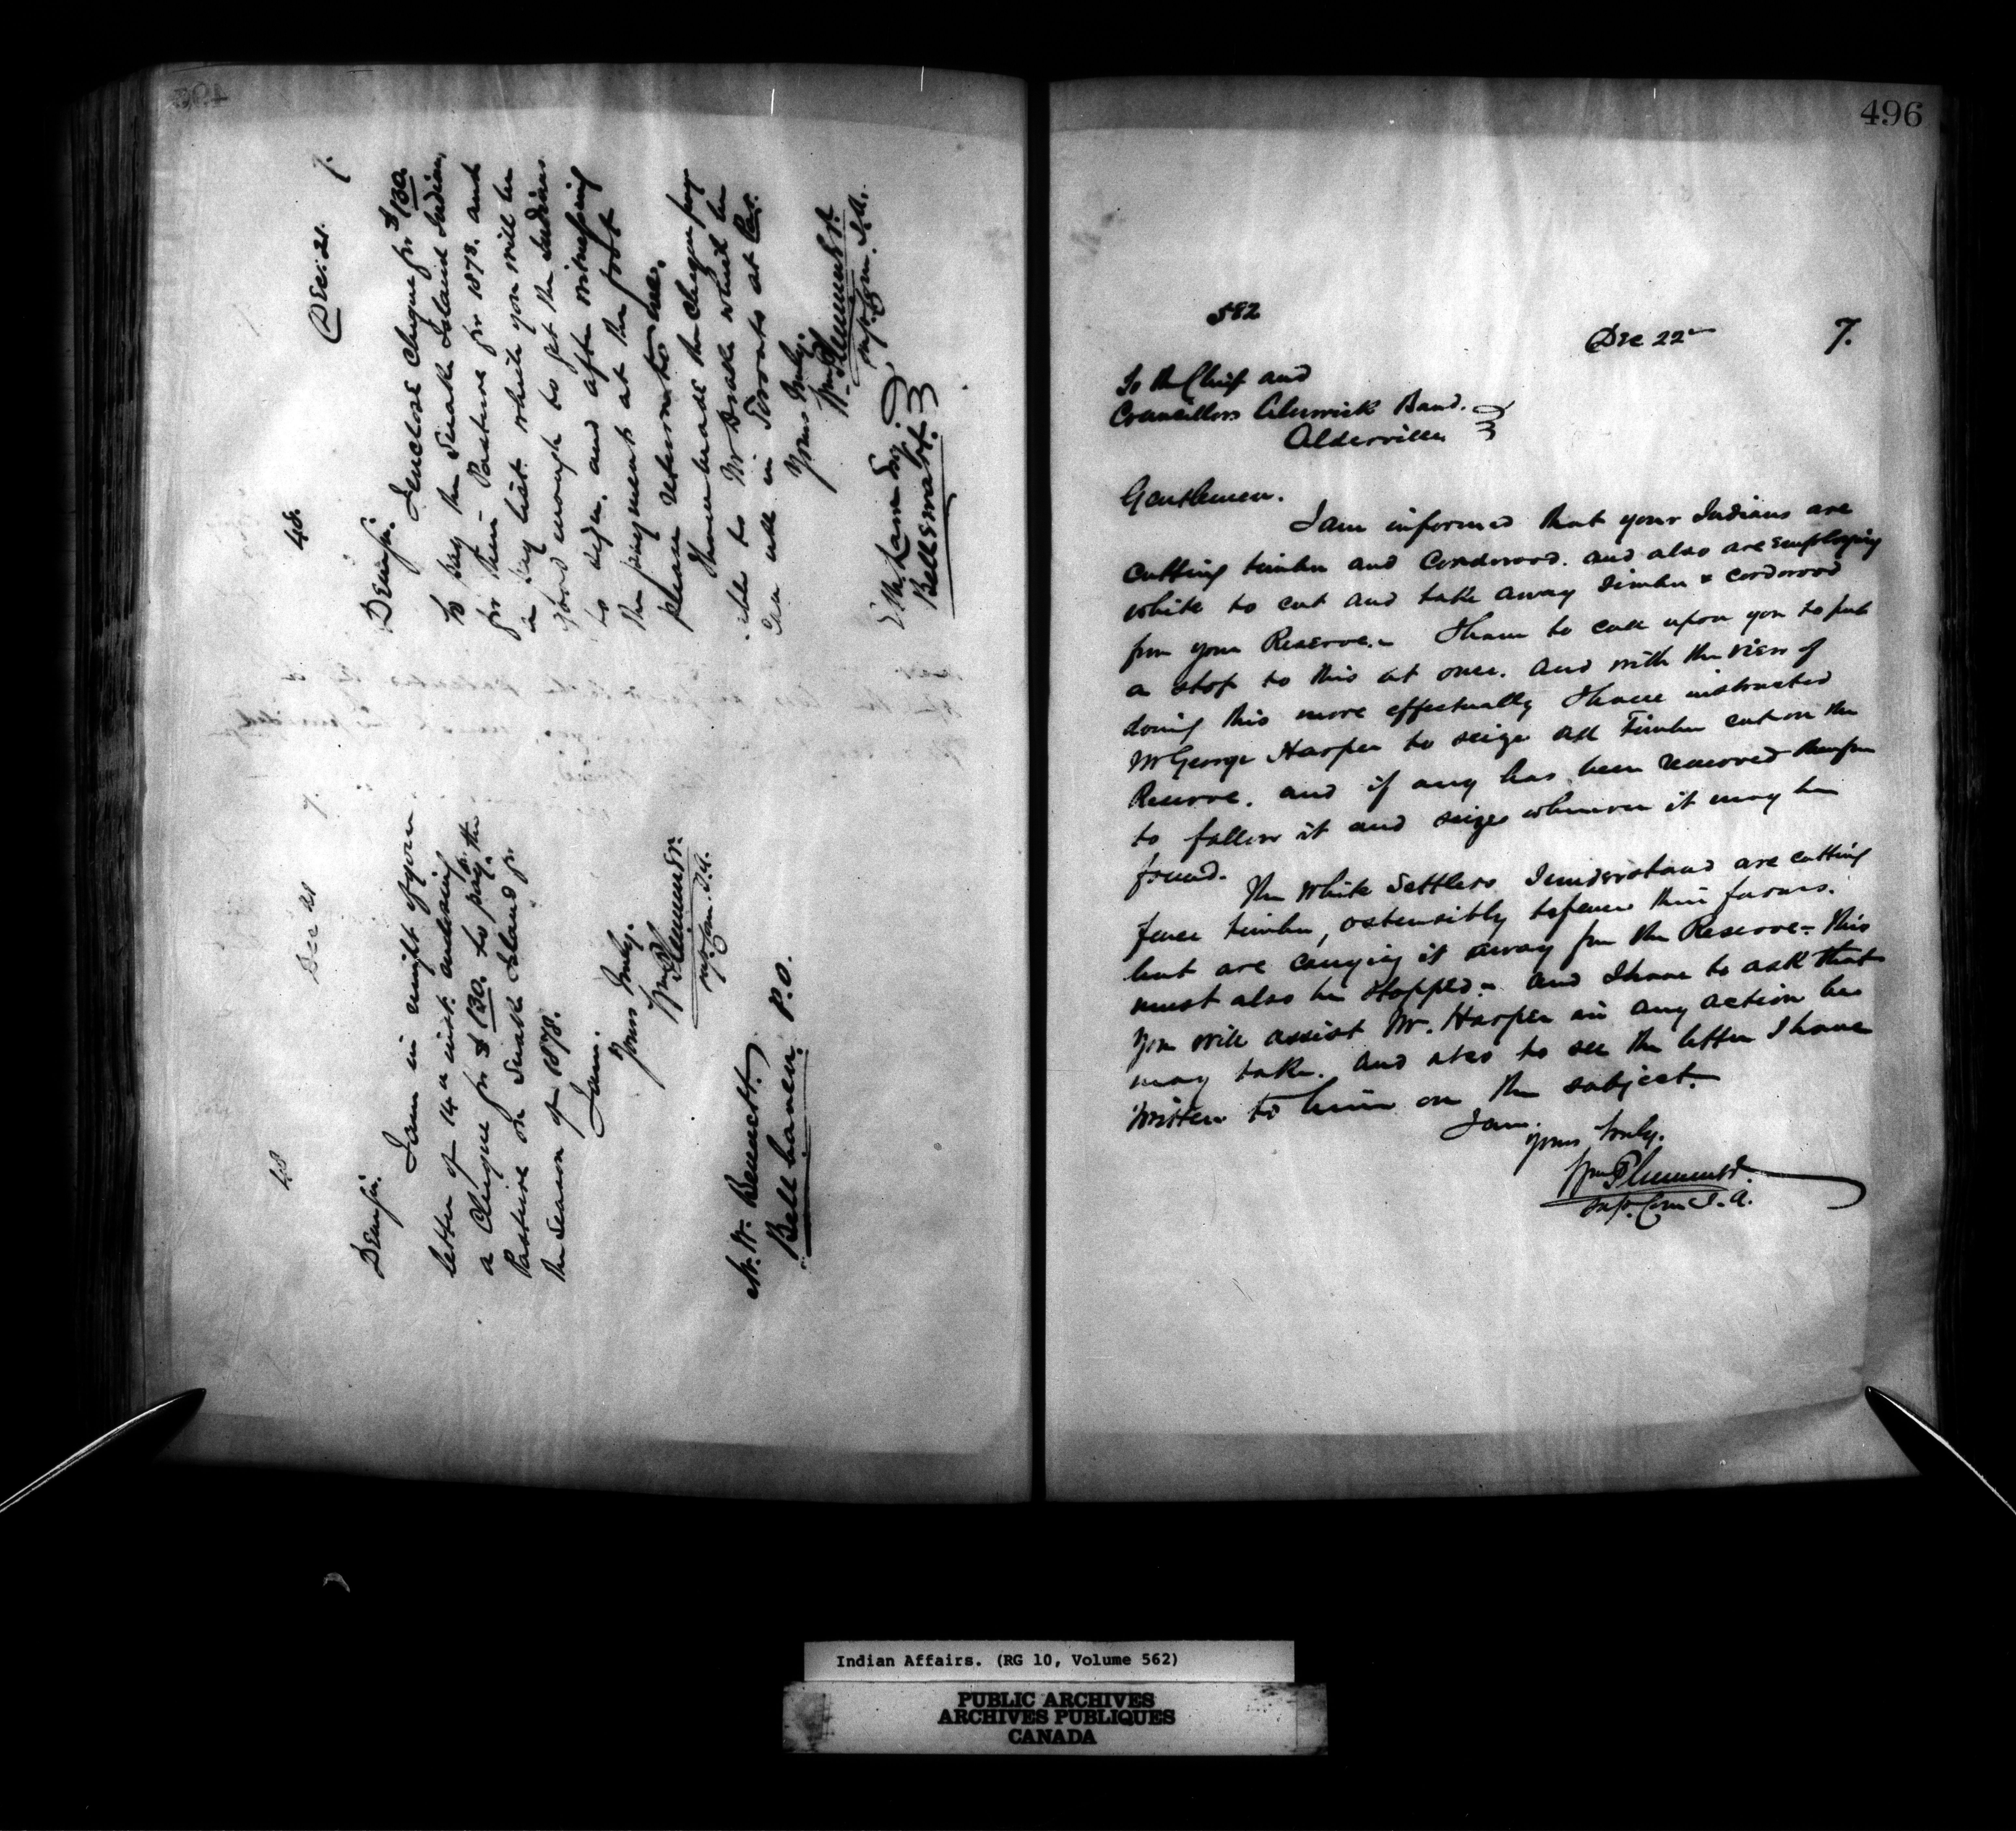 48
Dec 21
7.
Dear Sir.
I am in receipt of your
letter of 14th inst. enclosing
a Cheque for $130. to pay for the
Pasture on Snake Island for
the Season of 1878.
I am.
Yours truly.
Wm Plummer.
Supt. Com. I.A.
N. W. Bennett.
Bellhaven. P.O.
48.
Dec: 21.
7.
Dear Sir.
I enclose Cheque for $130.
to pay the Snake Island Indians,
for their Pasture for 1878. and
a pay list. which you will be
good enough to get the Indians
to sign, and after witnessing
the payments at the foot
please return to me.
I have made the Cheque pay
able to Mr Drake which he
can in Toronto at Par.
Yours truly.
Wm Plummer.
Supt. Com. I.A.
Esq.
Bellewart.
496
582
Dec 22nd
7.
To the Chief and
Councillors Alnwick Band.
Alderville
Gentlemen.
I am informed that your Indians are
cutting timber and Cordwood. and also are employing
white to cut and take away Timber & cordwood
from your Reserve.- I have to call upon you to put
a stop to this at once. and with the view of
doing this more effectually I have instructed
Mr George Harper to seize all Timber cut on the
Reserve. and if any has been removed therefrom
to follow it and seize wherever it may be
found.
The White Settlers I understand are cutting
fence timber, ostensibly to fence their farms.
but are carrying it away from the Reserve - this
must also be Stopped.- and I have to ask that
you will assist Mr. Harper in any action he
may take. and also to see the letter I have
written to him on the subject.
I am.
Yours truly.
Wm Plummer.
Supt. Com I. A.
Indian Affairs. (RG 10, Volume 562)
PUBLIC ARCHIVES
ARCHIVES PUBLIQUES
CANADA